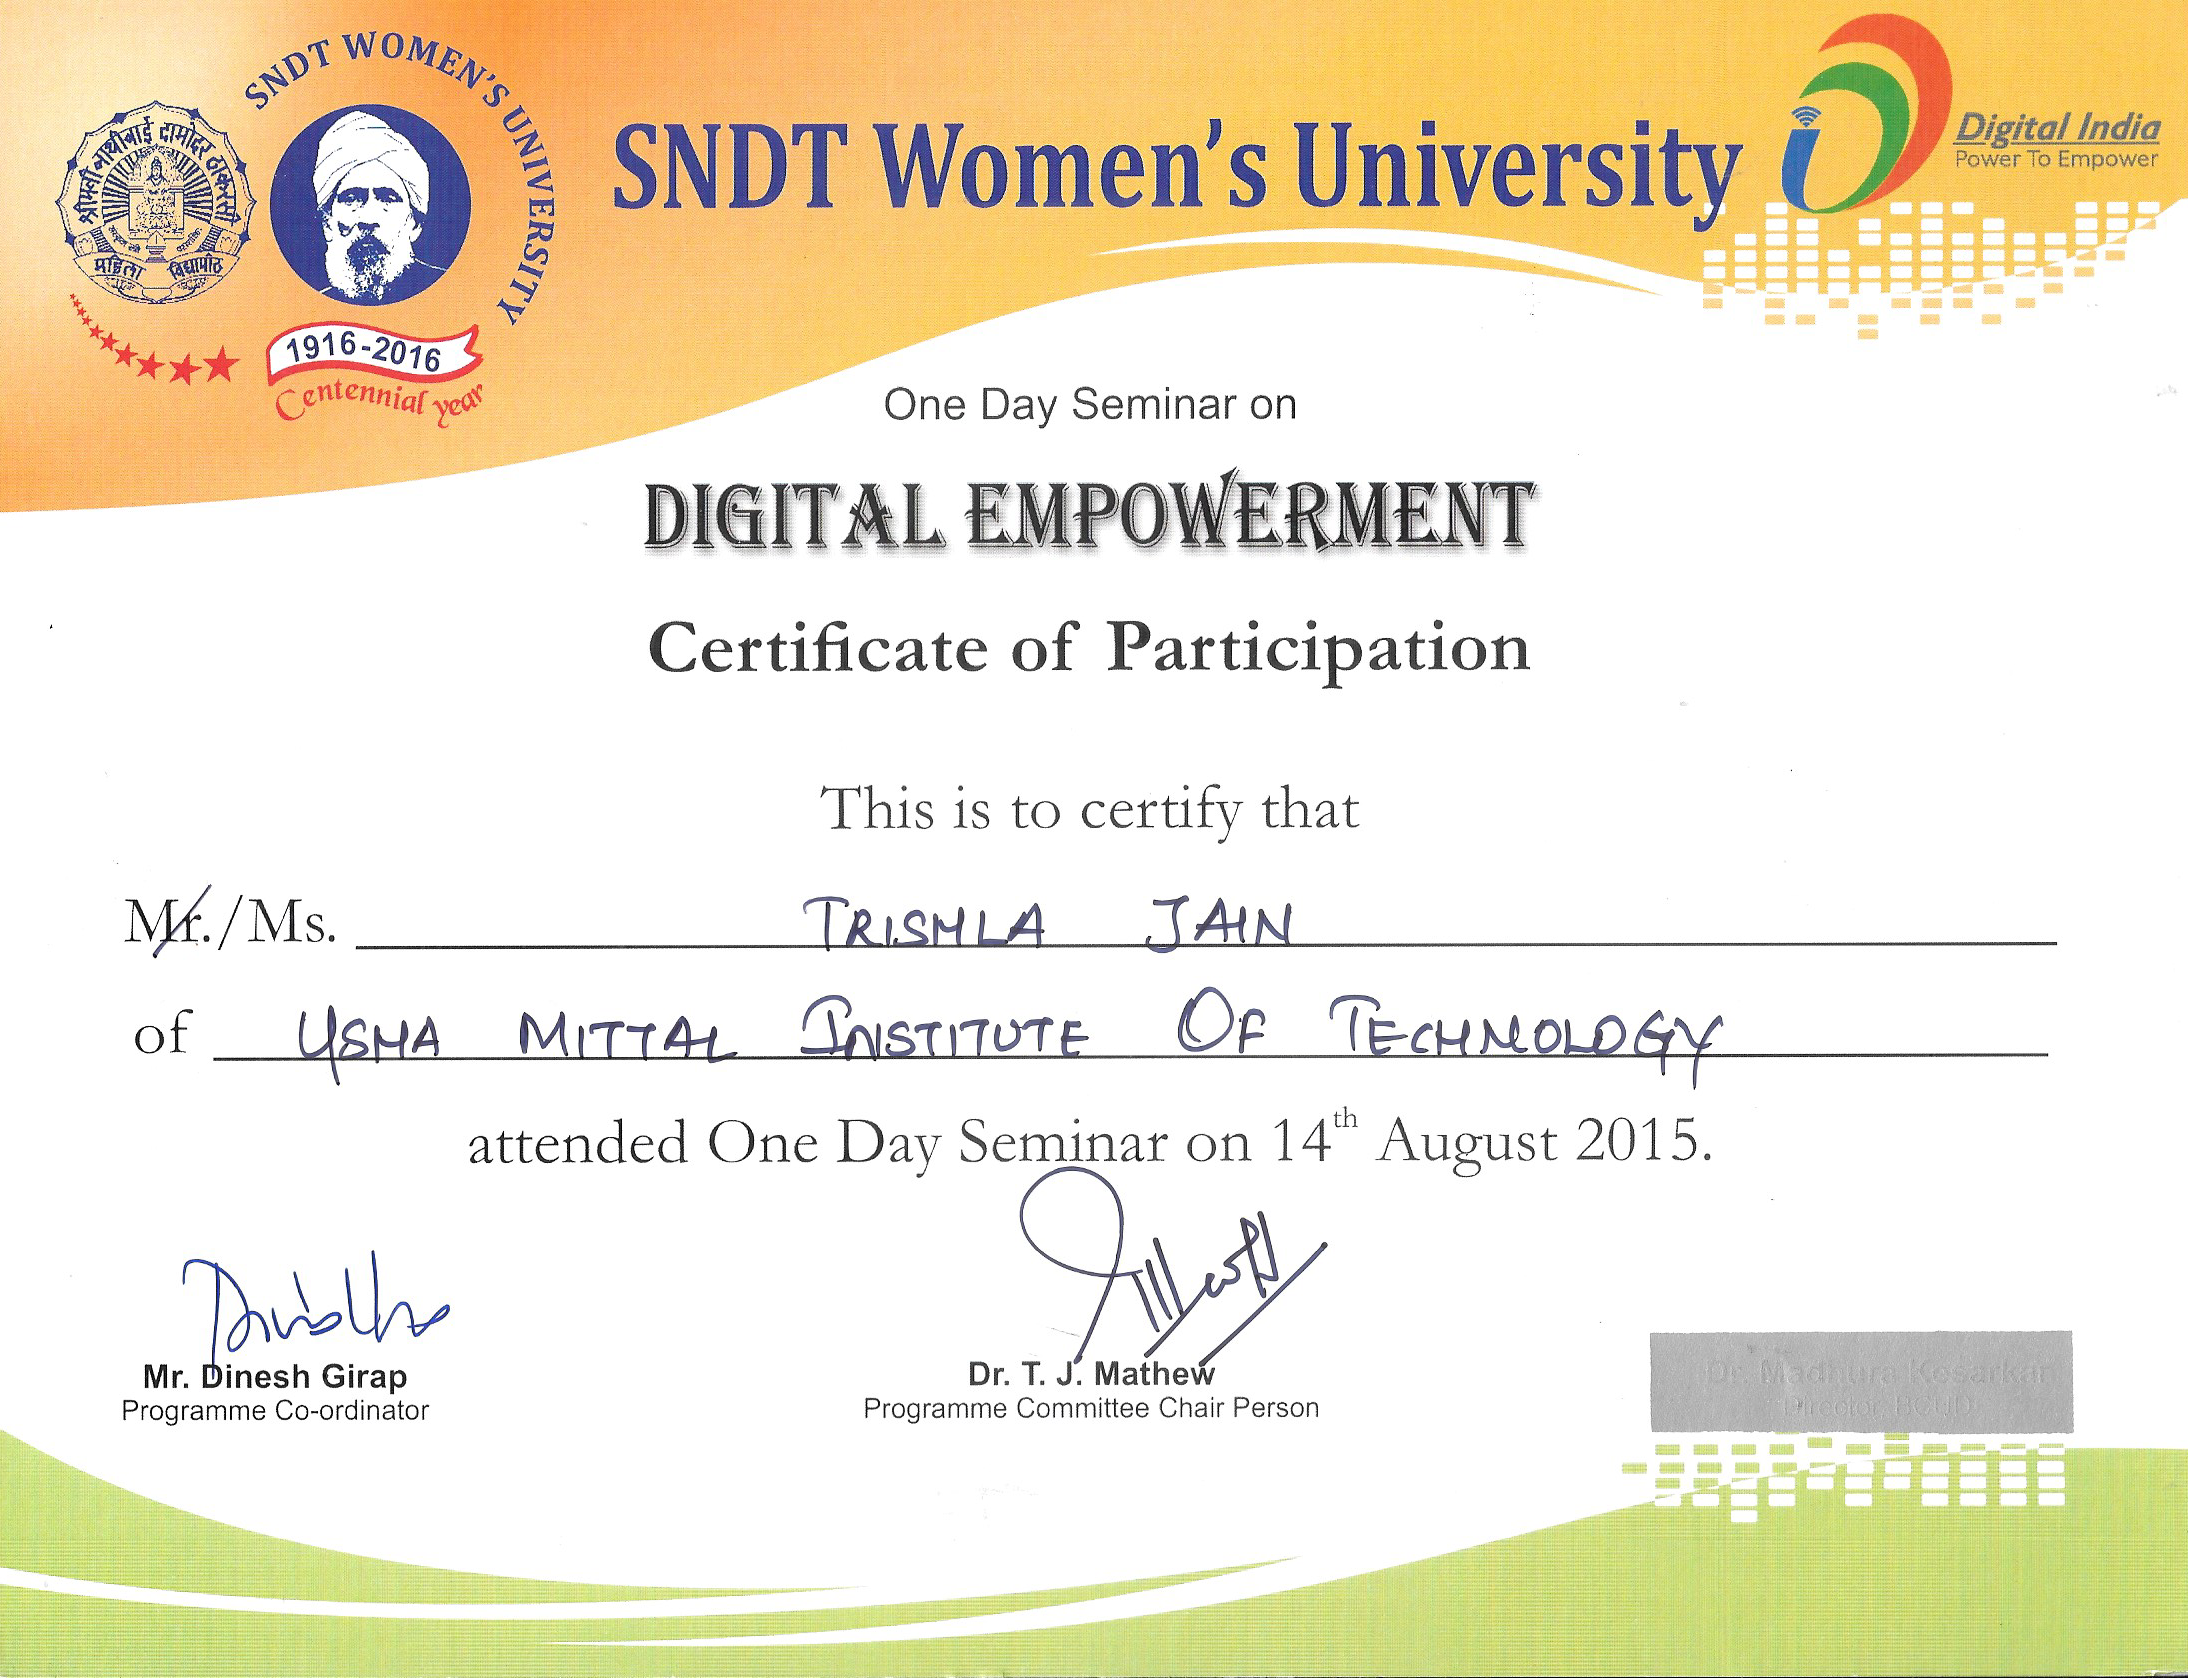 SNDT WOMEN'S UNIVERSITY
श्रीमती नाथीबाई दामोदर ठाकरसी
महिला विद्यापीठ
1916-2016
Centennial year
SNDT Women's University
Digital India
Power To Empower
One Day Seminar on
DIGITAL EMPOWERMENT
Certificate of Participation
This is to certify that
Mr./Ms. TRISHLA JAIN
of USHA MITTAL INSTITUTE OF TECHNOLOGY
attended One Day Seminar on 14th August 2015.
Mr. Dinesh Girap
Programme Co-ordinator
Dr. T. J. Mathew
Programme Committee Chair Person
Dr. Madhura Kesarkar